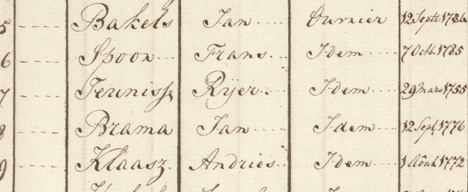 5 ---- Bakels Jan .... Ournier 12 Septb 1784
6 ---- Spoon ... Frans ... Idem .... 7 Octb. 1785
7 ---- Teunisse Ryer ... Idem ... 29 Mars 1755
8 ---- Brama Jan .... Idem ... 12 Sept. 1776
9 ---- Klaasz. Andries .. Idem ... 1 Aôut. 1772